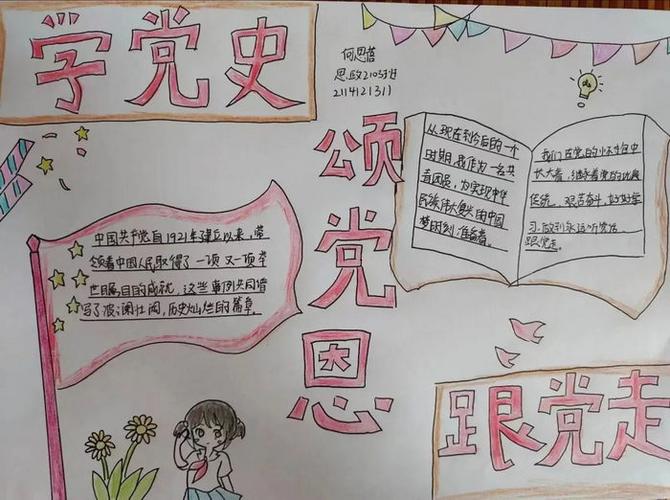 学党史
何思蓓
思政2103班
2114121311
颂党恩
中国共产党自1921年建立以来,带
领着中国人民取得了一项又一项举
世瞩目的成就,这些事例共同谱
写了波澜壮阔,历史灿烂的篇章。
从现在到今后的一个
时期,我作为一名共
青团员,为实现中华
民族伟大复兴的中国
梦时刻准备着。
我们在党的怀抱中
长大着,继承着党的优良
传统。艰苦奋斗,好好学
习,做到永远听党话。
跟党走。
跟党走